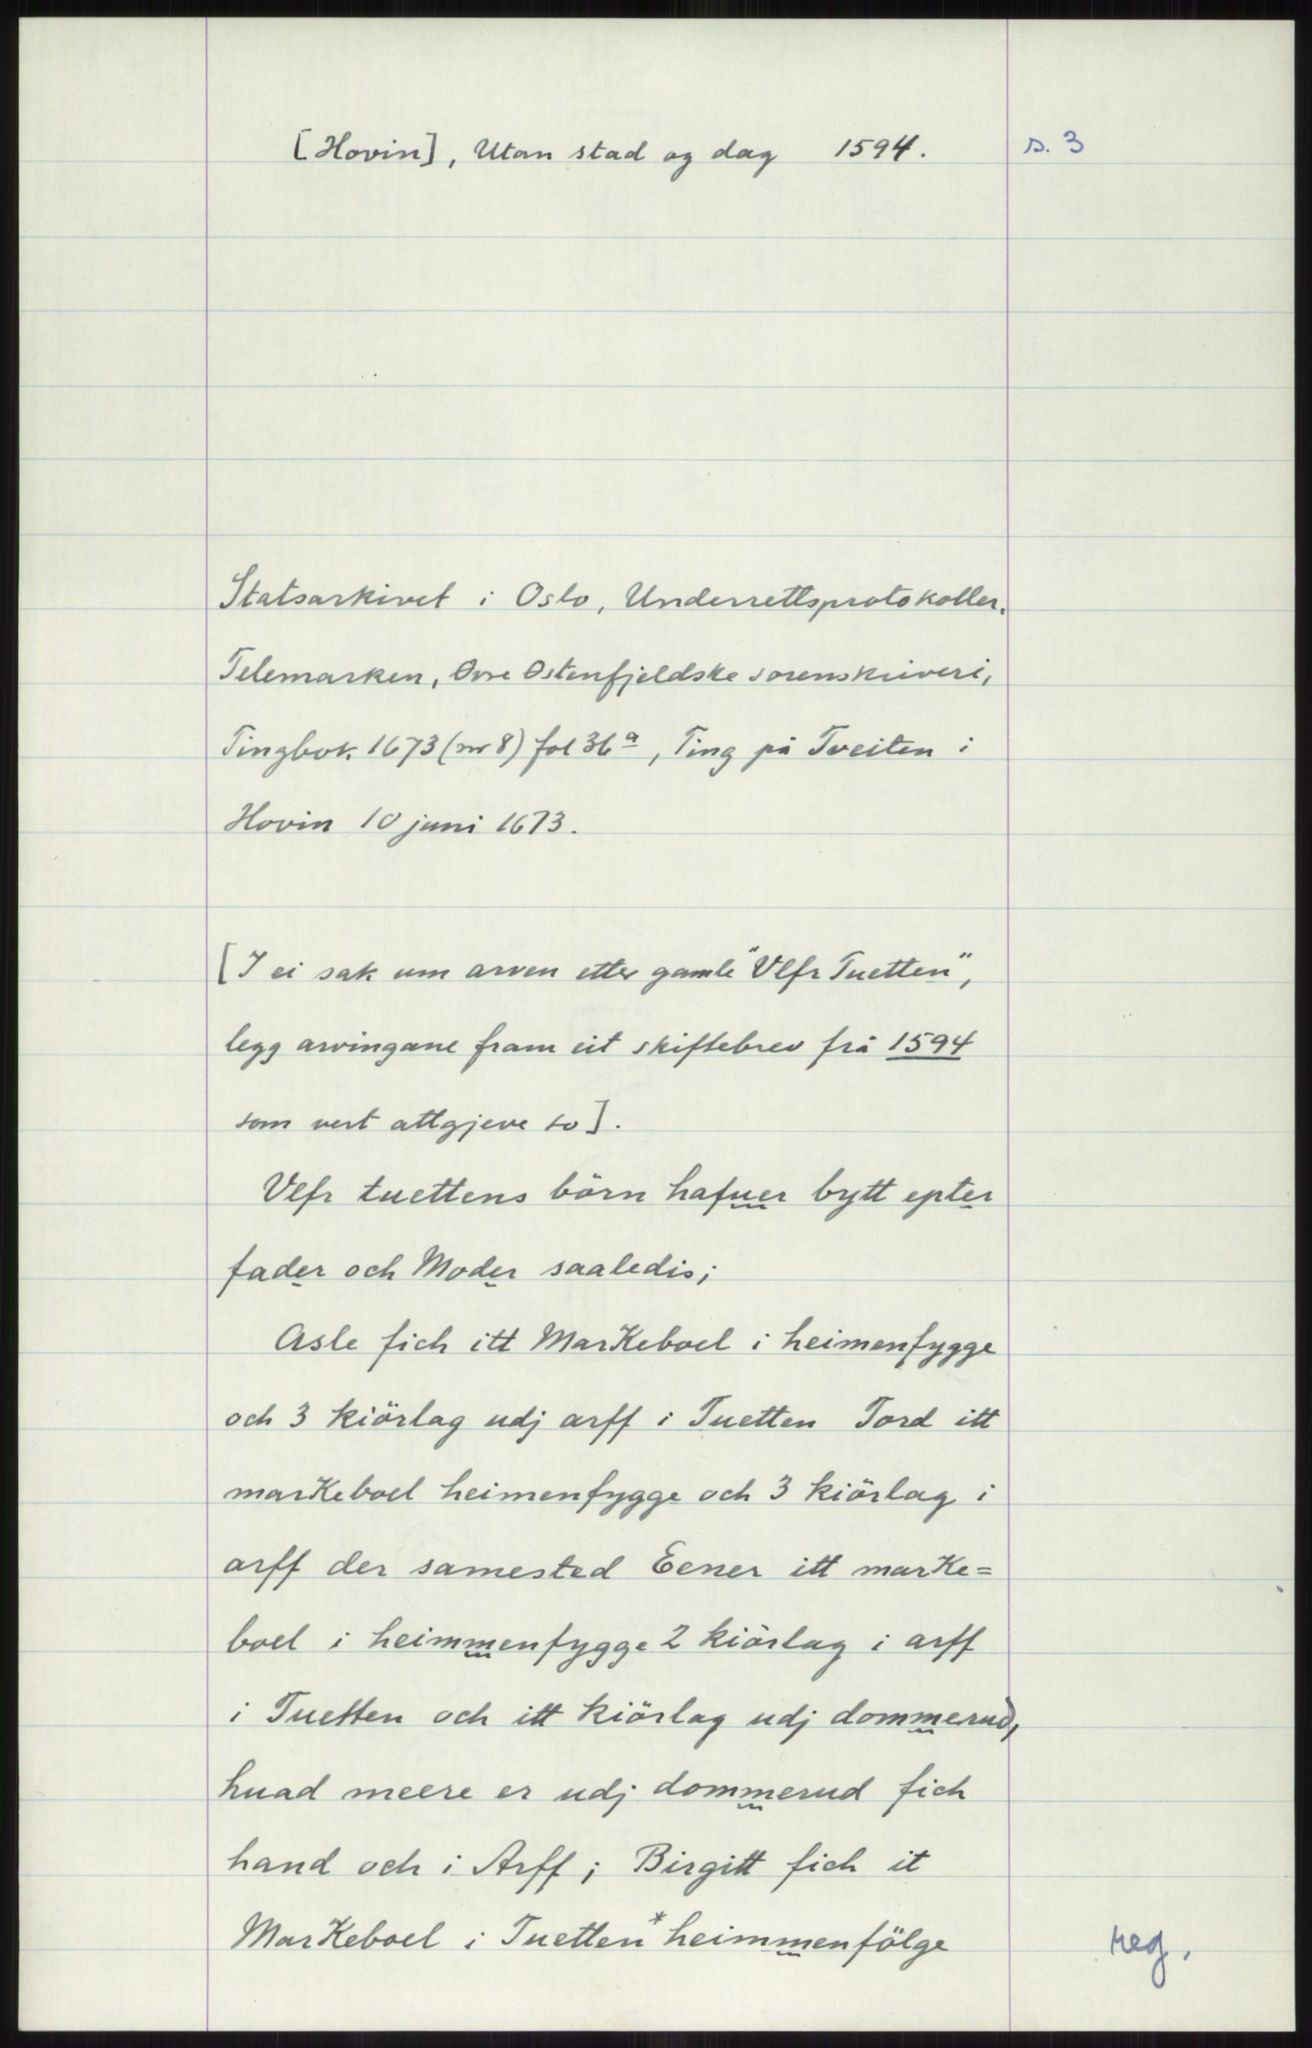 [Hovin], Utan stad og dag 1594. s. 3
Statsarkivet i Oslo, Underrettsprotokoller.
Telemarken, Øvre Østenfjeldske sorenskriveri,
Tingbok 1673 (nr 8) fol 36a, Ting på Tveiten i
Hovin 10 juni 1673.
[I ei sak um arven etter gamle "Vlfr Tuetten",
legg arvingane fram eit skiftebrev frå 1594
som vert attgjeve so].
Vlfr tuettens börn hafuer bytt epter
fader och Moder saaledis;
Asle fich itt MarKeboel i heimenfygge
och 3 kiörlag udj arff i Tuetten Tord itt
marKeboel heimenfygge och 3 kiörlag i
arff der samested Eener itt marKe=
boel i heimmenfygge 2 kiörlag i arff
i Tuetten och itt kiörlag udj dommerud,
huad meere er udj dommerud fich
hand och i Arff; Birgitt fich it
MarKeboel i Tuetten* heimmenfölge
reg.